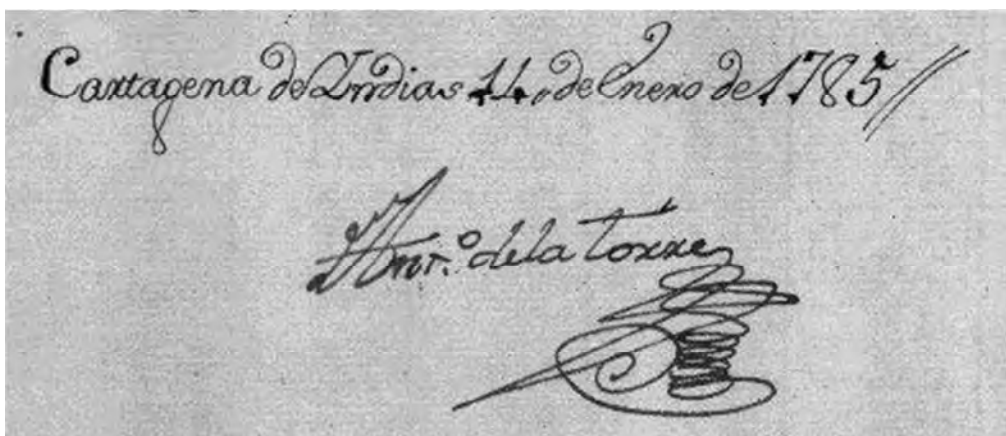 Cartagena de Indias 14,, de Enero de 1785//
Antº. de la Torre